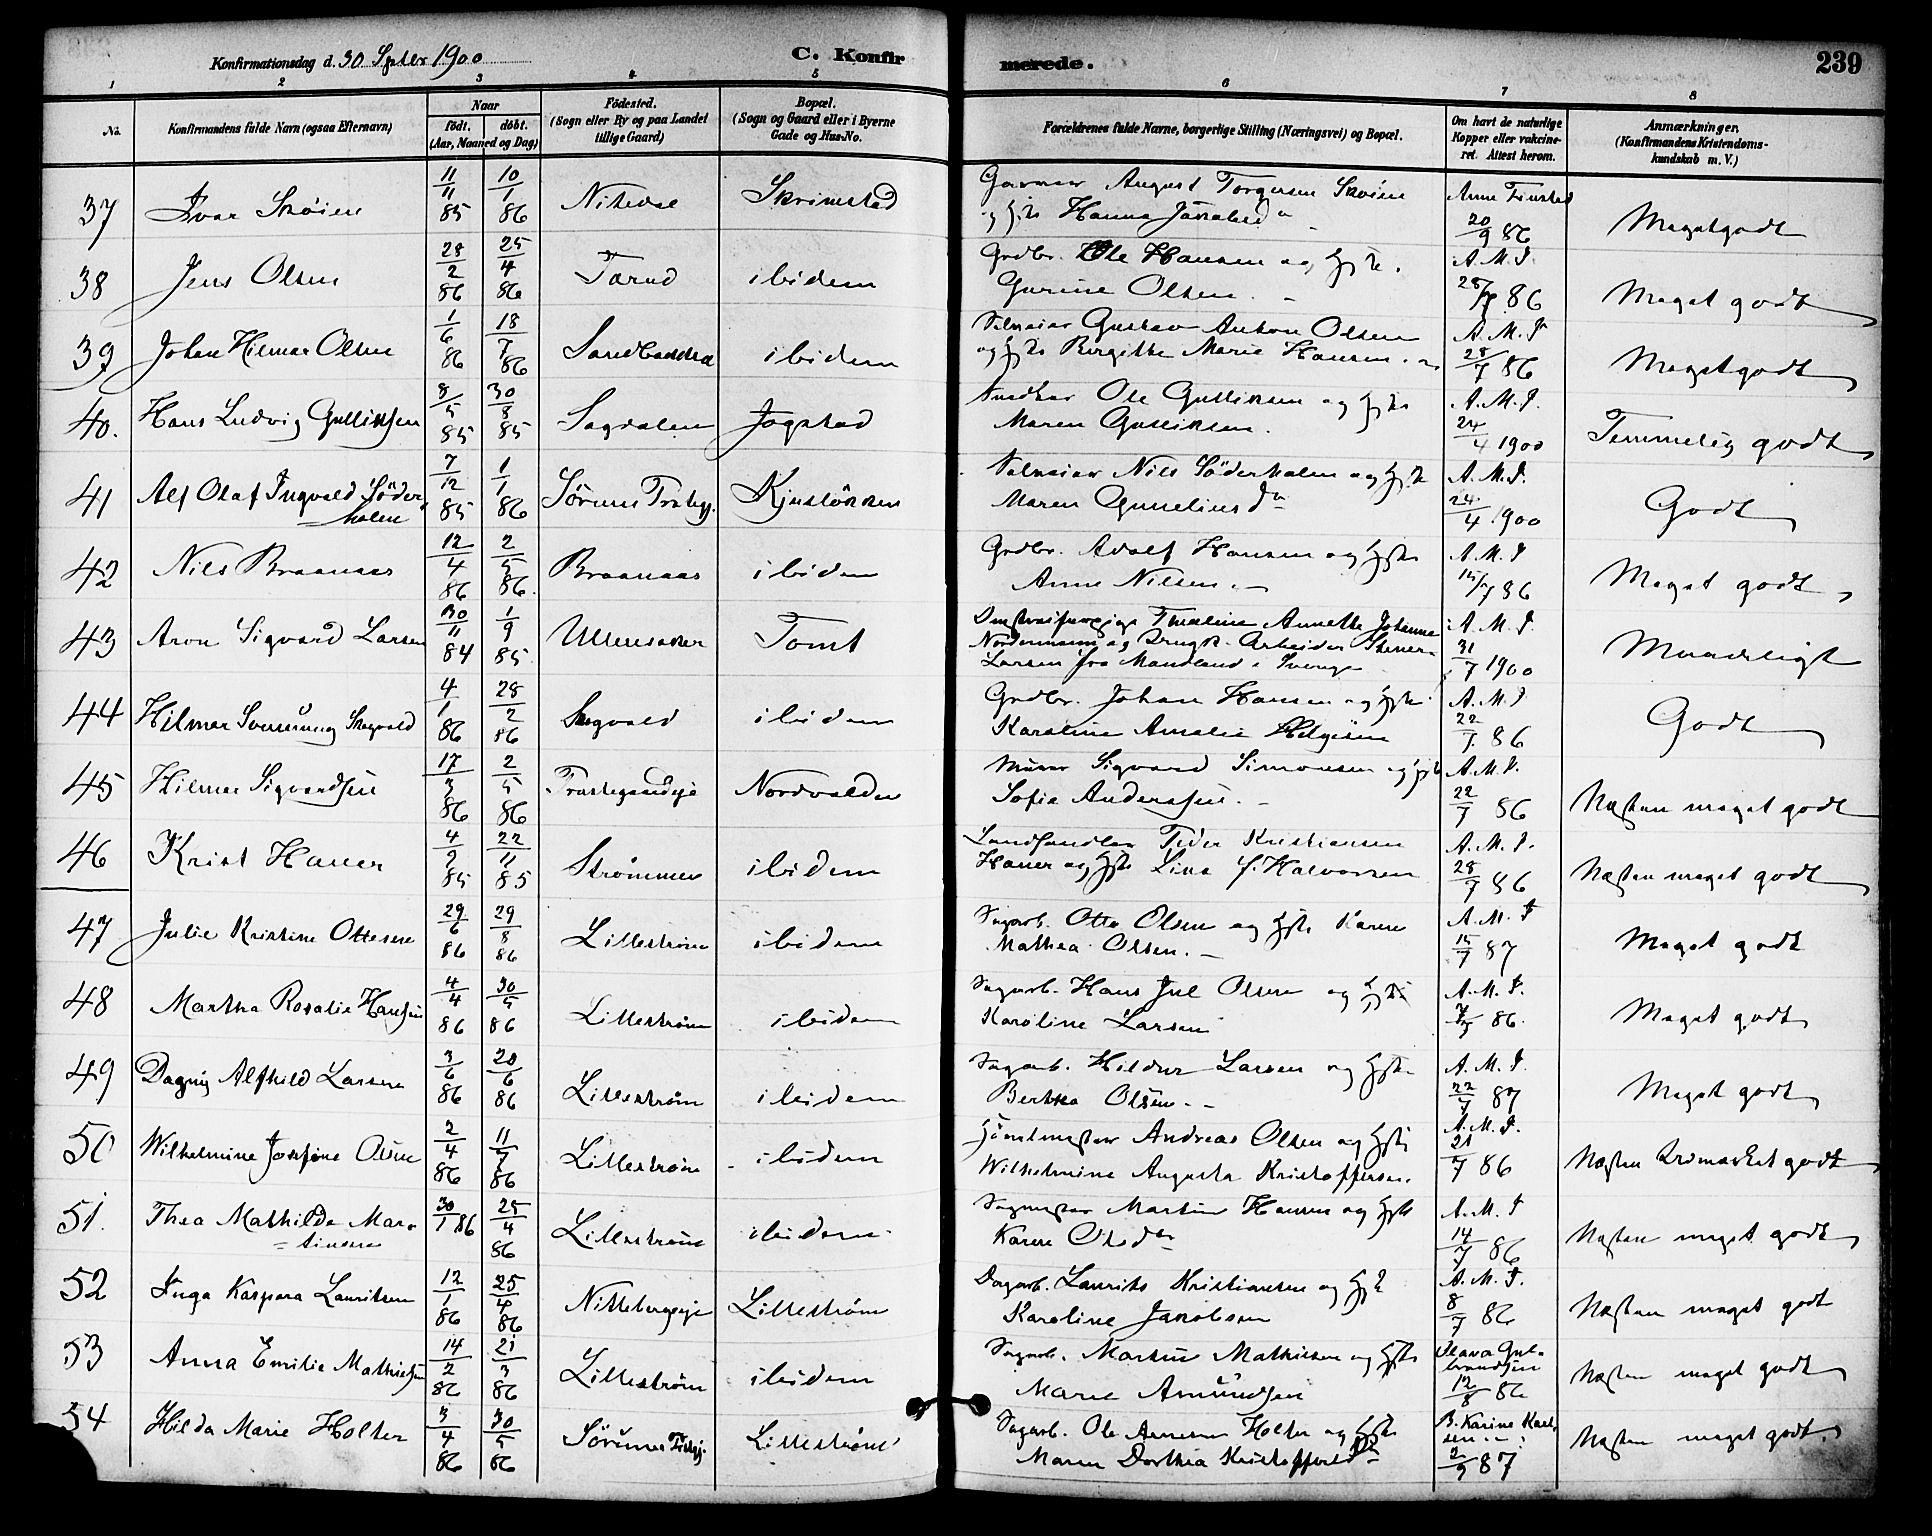 Konfirmationsdag d. 30 Sptbr 1900
C. Konfirmerede.
239
1 2 3 4 5 6 7 8
No.
Konfirmandens fulde Navn (ogsaa Efternavn)
Naar
født. døbt.
(Aar, Maaned og Dag)
Fødested.
(Sogn eller By og paa Landet
tillige Gaard)
Bopæl.
(Sogn og Gaard eller i Byerne
Gade og Hus-No.
Forældrenes fulde Navne, borgerlige Stilling (Næringsvei) og Bopæl.
Om havt de naturlige
Kopper eller vaccine-
ret. Attest herom.
Anmærkninger.
(Konfirmandens Kristendoms-
kundskab m. V.)
37 Ivar Skøien 11/11 85 10/1 86 Nitedal Skrimstad August Torgersen Skøien
og Hanna Jakobsd. 20/9 86 Meget godt
38 Jens Olsen 28/2 86 25/4 86 Tærud ibidem Grdbr. Ole Hansen og Hst.
Gurine Olsen. A. M. F. 86 Meget godt
39 Johan Hilmar Olsen 1/6 86 18/7 86 Sandbakken ibidem Gustav Anton Olsen
og Hst Birgitte Marie Hansen. A. M. F. 28/7 86 Meget godt
40. Hans Ludvig Gulliksen 8/5 85 30/8 85 Sagdalen Jogstad Snedker Ole Gulliksen og Hst
Maren Gulliksen. A. M. F. 24/4 1900 Temmelig godt
41 Alf Olaf Ingvald Söder-
holen 7/12 85 1/1 86 Sörum Nils Söderholen og Hst
Maren A. M. F. 24/4 1900 Godt
42 Nils Braanaas 12/4 86 2/5 86. Braanaas ibidem Grdbr. Adolf Hansen og Hst
Anne Nilsen. A. M. F. 15/7 86 Meget godt
43 Aron Sigvard Larsen 30/11 84 1/9 85. Ullensaker Tomt Annette Johanne
Nordermann og Arbeider Stener
Larsen fra i Sverige A. M. F. 31/7 1900 Maadeligt
44 Hilmar Svenning Skogvold 4/1 86 28/2 86 Skogvold ibidem Grdbr. Johan Hansen og Hst
Karoline Amalie Helgesen A. M. F. 22/7 86 Godt
45 Hilmar Sigvardsen 17/3 86 2/5 86 Nordvolden Murer Sigvard Simonsen og Hst
Sofie Andersen. A. M. F. 22/7 86 Næsten meget godt
46 Krist Hauer 4/9 85 22/11 85 Strømmen ibidem Landhandler Peder Kristiansen
Hauer og Hst Lina f. Halvorsen A. M. F. 28/7 86 Næsten meget godt
47 Julie Kristine Ottesen 29/6 86 29/8 86 Lillestrøm ibidem Sagarb. Otto Olsen og Hst Karen
Mathea Olsen. A. M. F. 15/7 87 Meget godt
48 Martha Rosalie Hansen 4/4 86 30/5 86 Lillestrøm ibidem Sagarb. Hans Jul Olsen og Hst
Karoline Larsen A. M. F. 86. Meget godt
49 Dagny Alfhild Larsen 3/6 86 20/6 86 Lillestrøm ibidem Sagarb. Hildur Larsen og Hst.
Bertha Olsen. A. M. F. 22/7 87 Meget godt
50 Wilhelmine Josefine Olsen 2/4 86 11/7 86 Lillestrøm ibidem Andreas Olsen og Hst
Wilhelmine Augusta Kristoffersen. A. M. F. 21/7 86 Næsten Udmærket godt
51. Thea Mathilde Mar-
tinsen 30/1 86 25/4 86 Lillestrøm ibidem. Sagmester Martin Hansen og Hst
Karen Olsd. A. M. F. 14/7 86 Næsten meget godt
52 Inga Kaspara Lauritsen 12/1 86 25/4 86 Nittebergseje Lillestrøm Dagarb. Laurits Kristiansen og Hst
Karoline Jakobsen A. M. F. 8/7 86 Næsten meget godt
53 Anna Emilie Mathisen 14/2 86 21/3 86 Lillestrøm ibidem Sagarb. Martin Mathisen og Hst
Marie Amundsen Olava Gul-
brandsen 12/8 86 Næsten meget godt
54 Hilda Marie Holter 3/4 86 30/5 86 Sörum Lillestrøm Sagarb. Ole Holter og Hst
Maren Dorthea Kristoffersd. B. Karine Karl-
sen 2/9 87 Næsten meget godt.